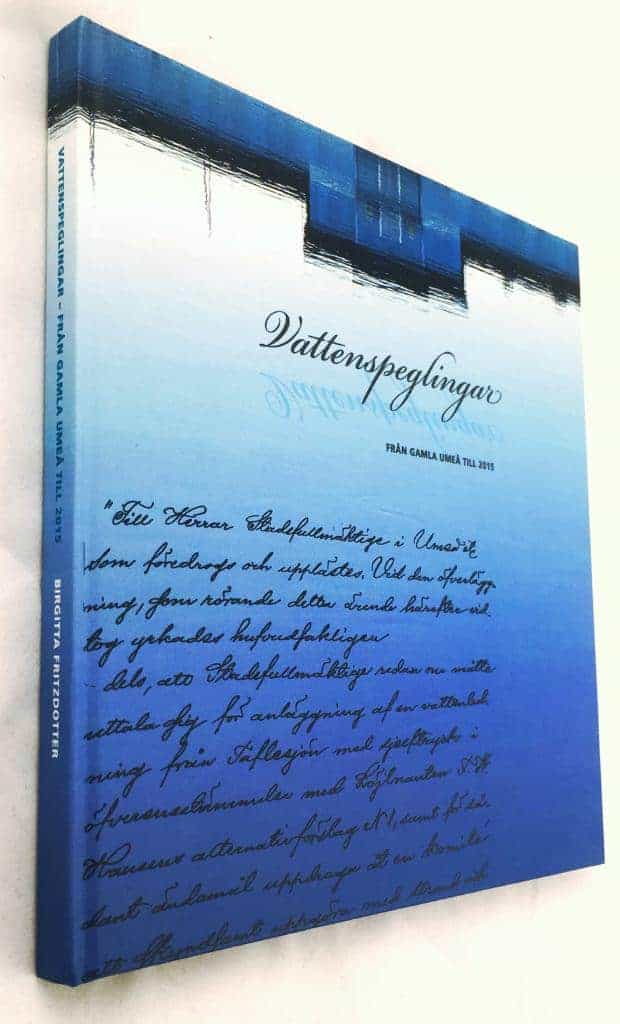 VATTENSPEGLINGAR – FRÅN GAMLA UMEÅ TILL 2015
BIRGITTA FRITZDOTTER
Vattenspeglingar
Vattenspeglingar
FRÅN GAMLA UMEÅ TILL 2015
"Till Herrar Stadsfullmäktige i Umeå
som föredrogs och upplästes. Vid den öfverlägg
ning, som rörande detta ärende härefter vid
tog yrkades hufvudsakligen
dels, att Stadsfullmäktige redan nu måtte
uttala sig för anläggning af en vattenled
ning från Täflesjön med sjelftryck i
öfverensstämmelse med Löjtnanten
Hansens alternativförslag N1, samt för så
dant ändamål uppdraga åt en komité
att skyndsamt uppgöra med